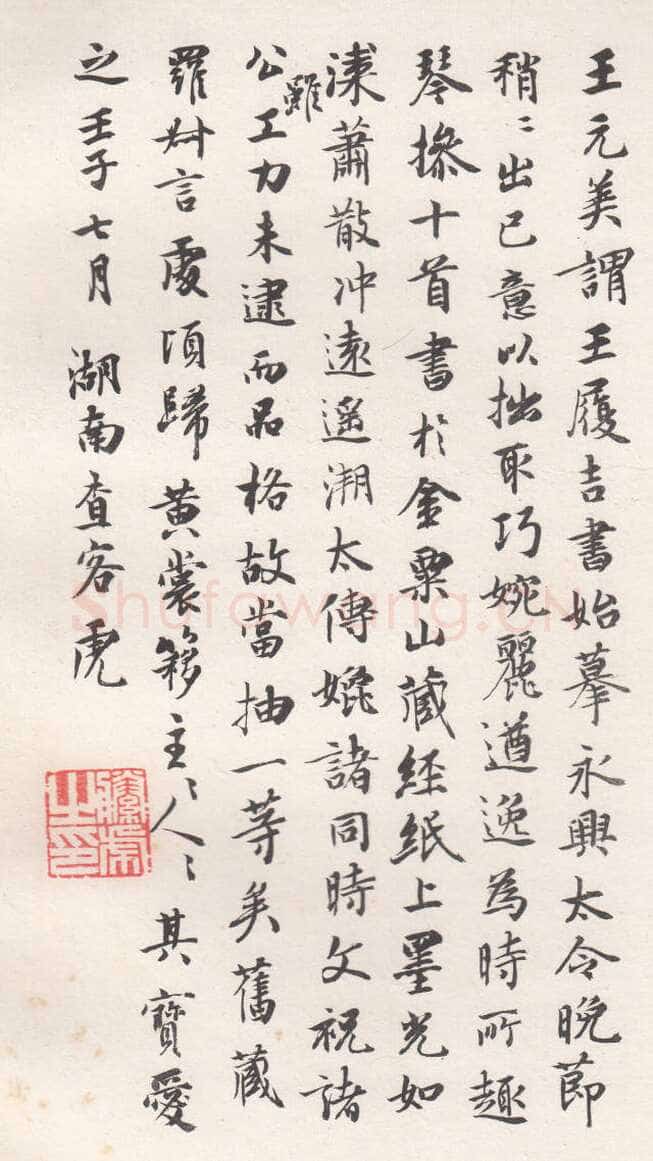 王元美謂王履吉書始摹永興太令晚節
稍〻出己意以拙取巧婉麗遒逸為時所趣
琴操十首書於金粟山藏经紙上墨光如
漆蕭散冲遠遥溯太傅媲諸同時文祝諸
公雖工力未逮而品格故當抽一等矣舊藏
羅叔言處頃歸黄裳簃主〻人〻其寳愛
之壬子七月 湖南查客虎
Shufawang.CN